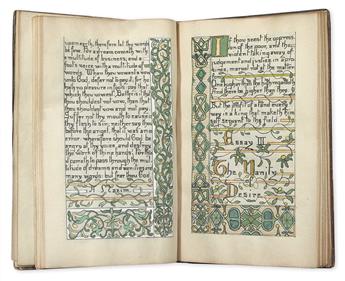 cometh, therefore let thy words
be few. For a dream cometh with
a multitude of business; and a
fool's voice with a multitude of
words. When thou vowest a vow
unto God, defer not to pay it; for he
hath no pleasure in fools: pay that
which thou vowest. Better is it that
thou shouldest not vow, than that
thou shouldest vow and not pay.
Suffer not thy mouth to cause
thy flesh to sin; neither say thou
before the angel, that it was an
error: wherefore should God be
angry at thy voice, and destroy
the work of thine hands? for
cometh to pass through the mul-
titude of dreams and vanities and
many words: but fear thou God.
If thou seest the oppress-
ion of the poor, and the
violent taking away of
judgement and justice in a pro-
vince, marvel not at the
there be higher than they.
But the profit of a land every
way is a king that maketh him
self servant to the field.
Essay III
The Vanity
of
Desire